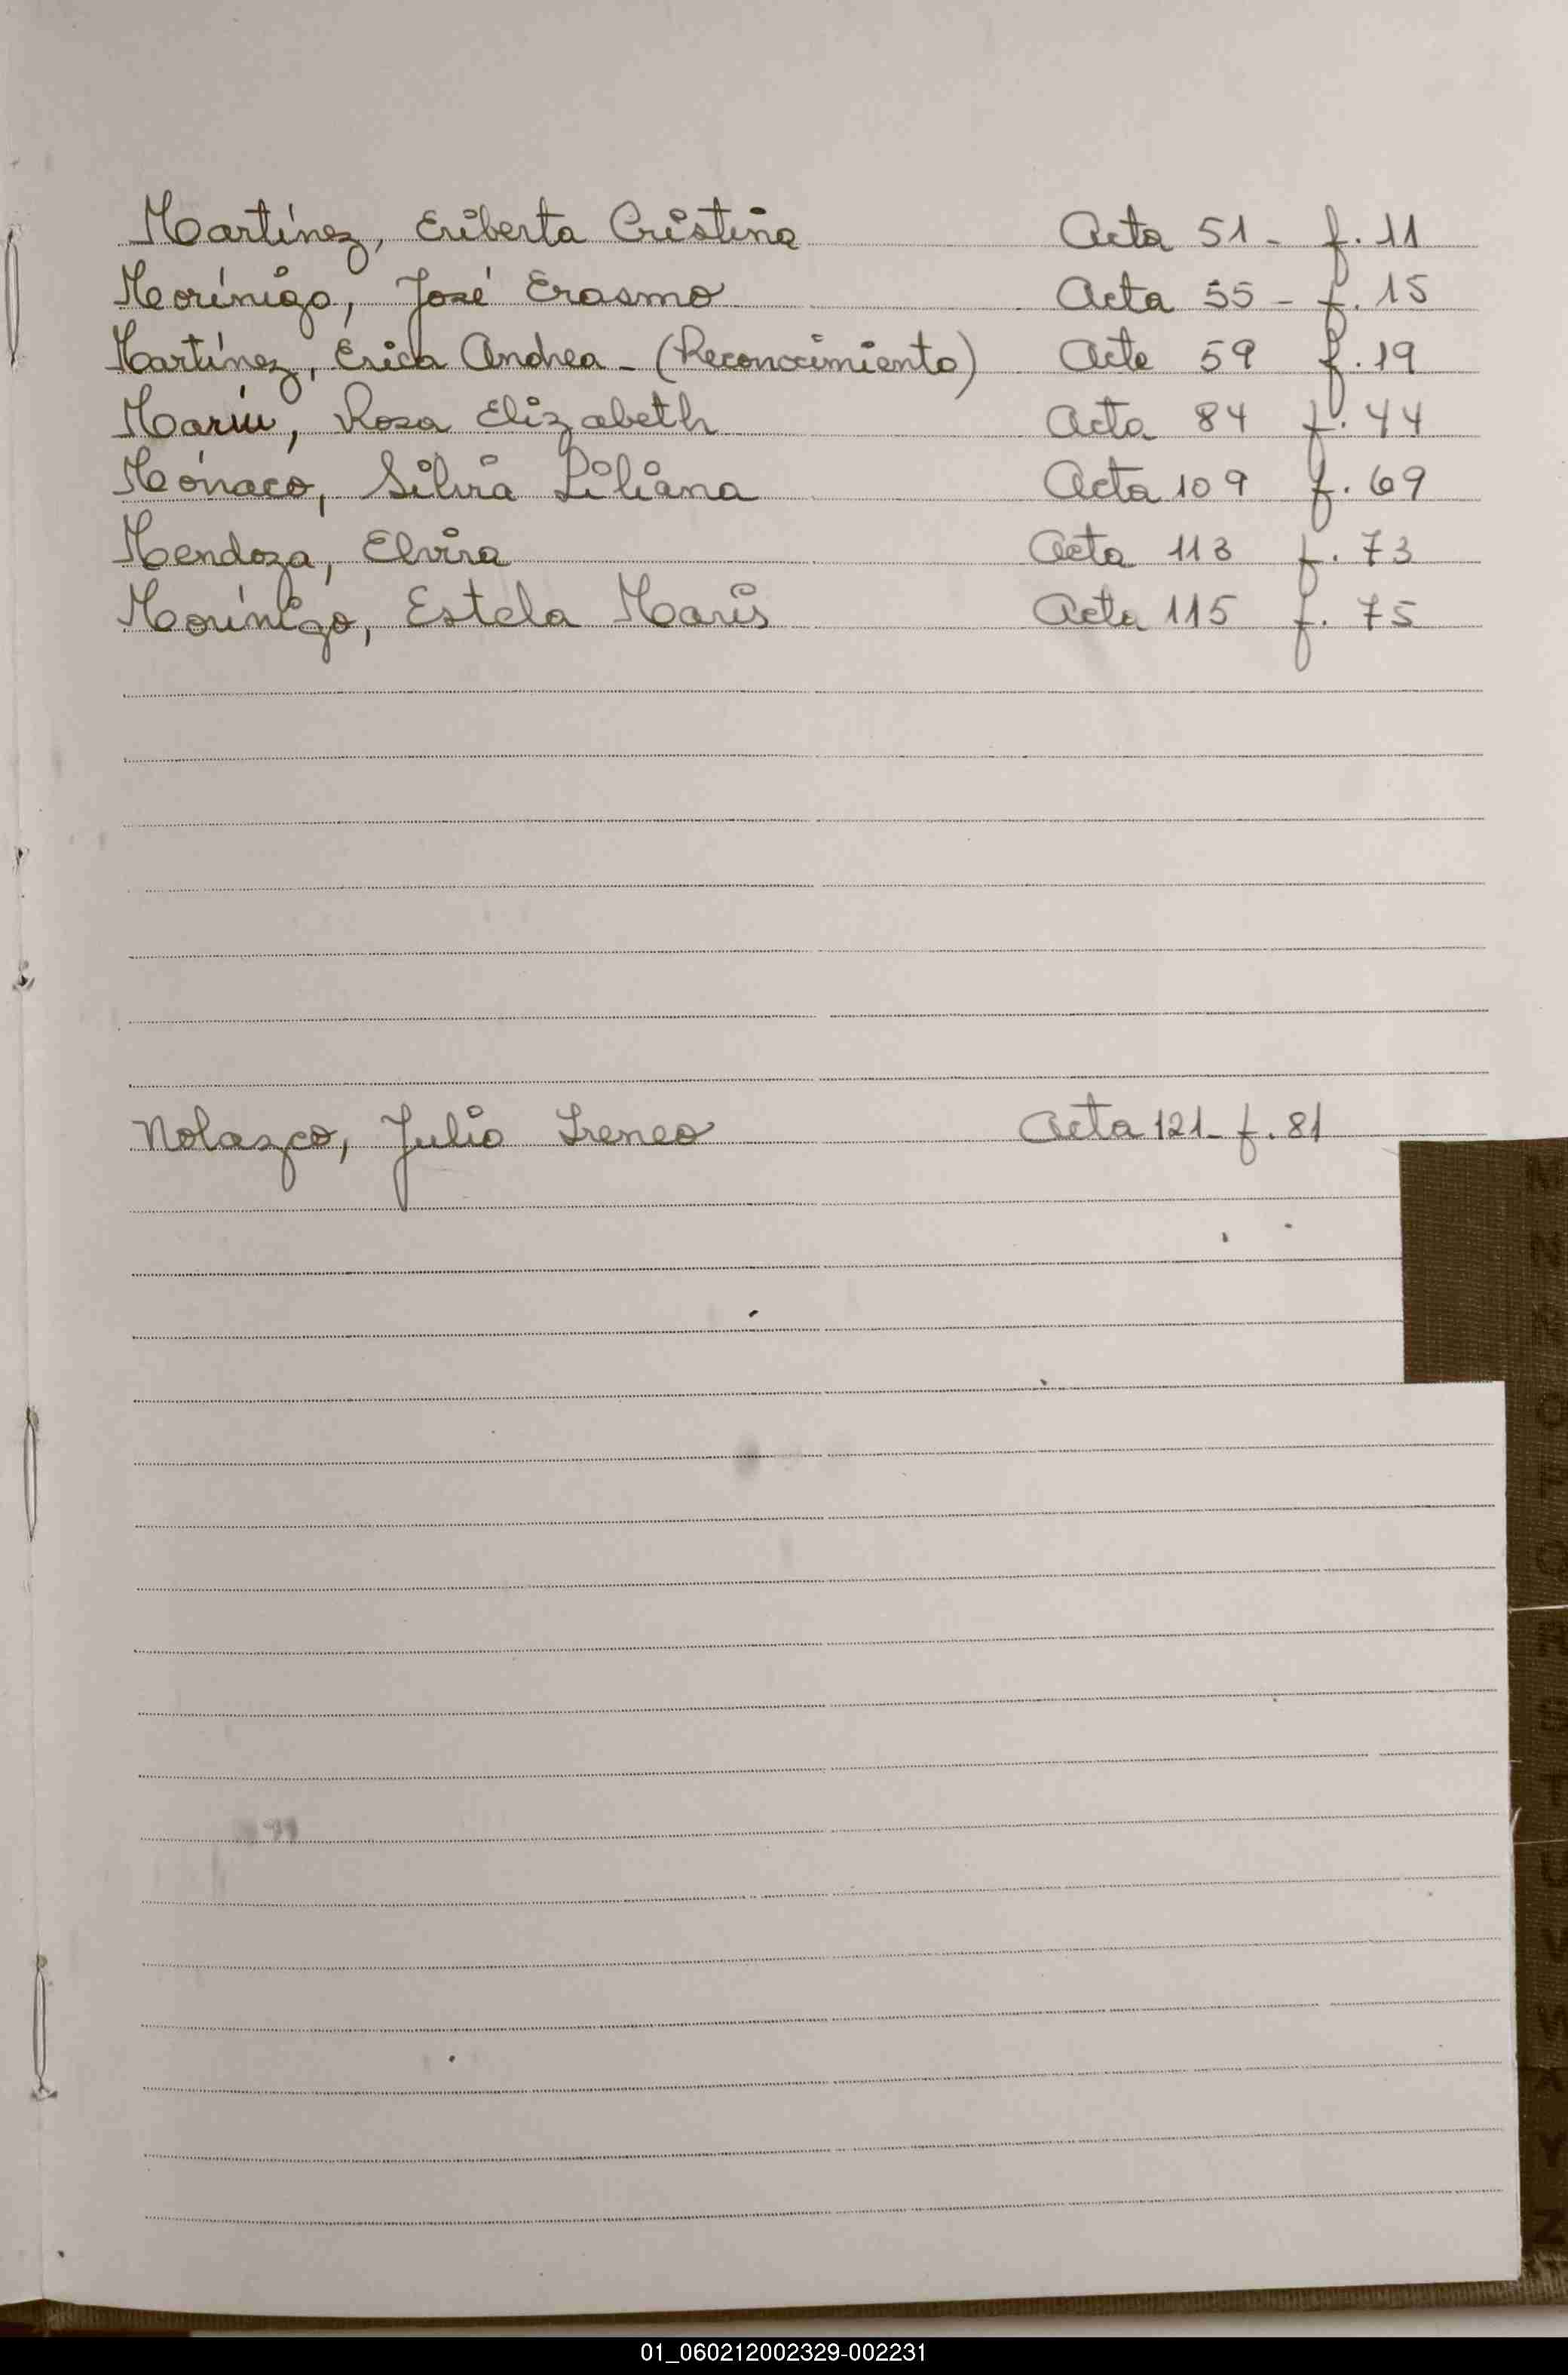 Martínez, Eriberta Cristina Acta 51 - f. 11
Morínigo, José Erasmo Acta 55 - f. 15
Martínez, Erica Andrea - (Reconocimiento) Acta 59 f. 19
Marin, Rosa Elizabeth Acta 84 f. 44
Mónaco, Silvia Liliana Acta 109 f. 69
Mendoza, Elvira Acta 113 f. 73
Morínigo, Estela Maris Acta 115 f. 75
Nolazco, Julio Ireneo Acta 121 - f. 81
01_060212002329-002231